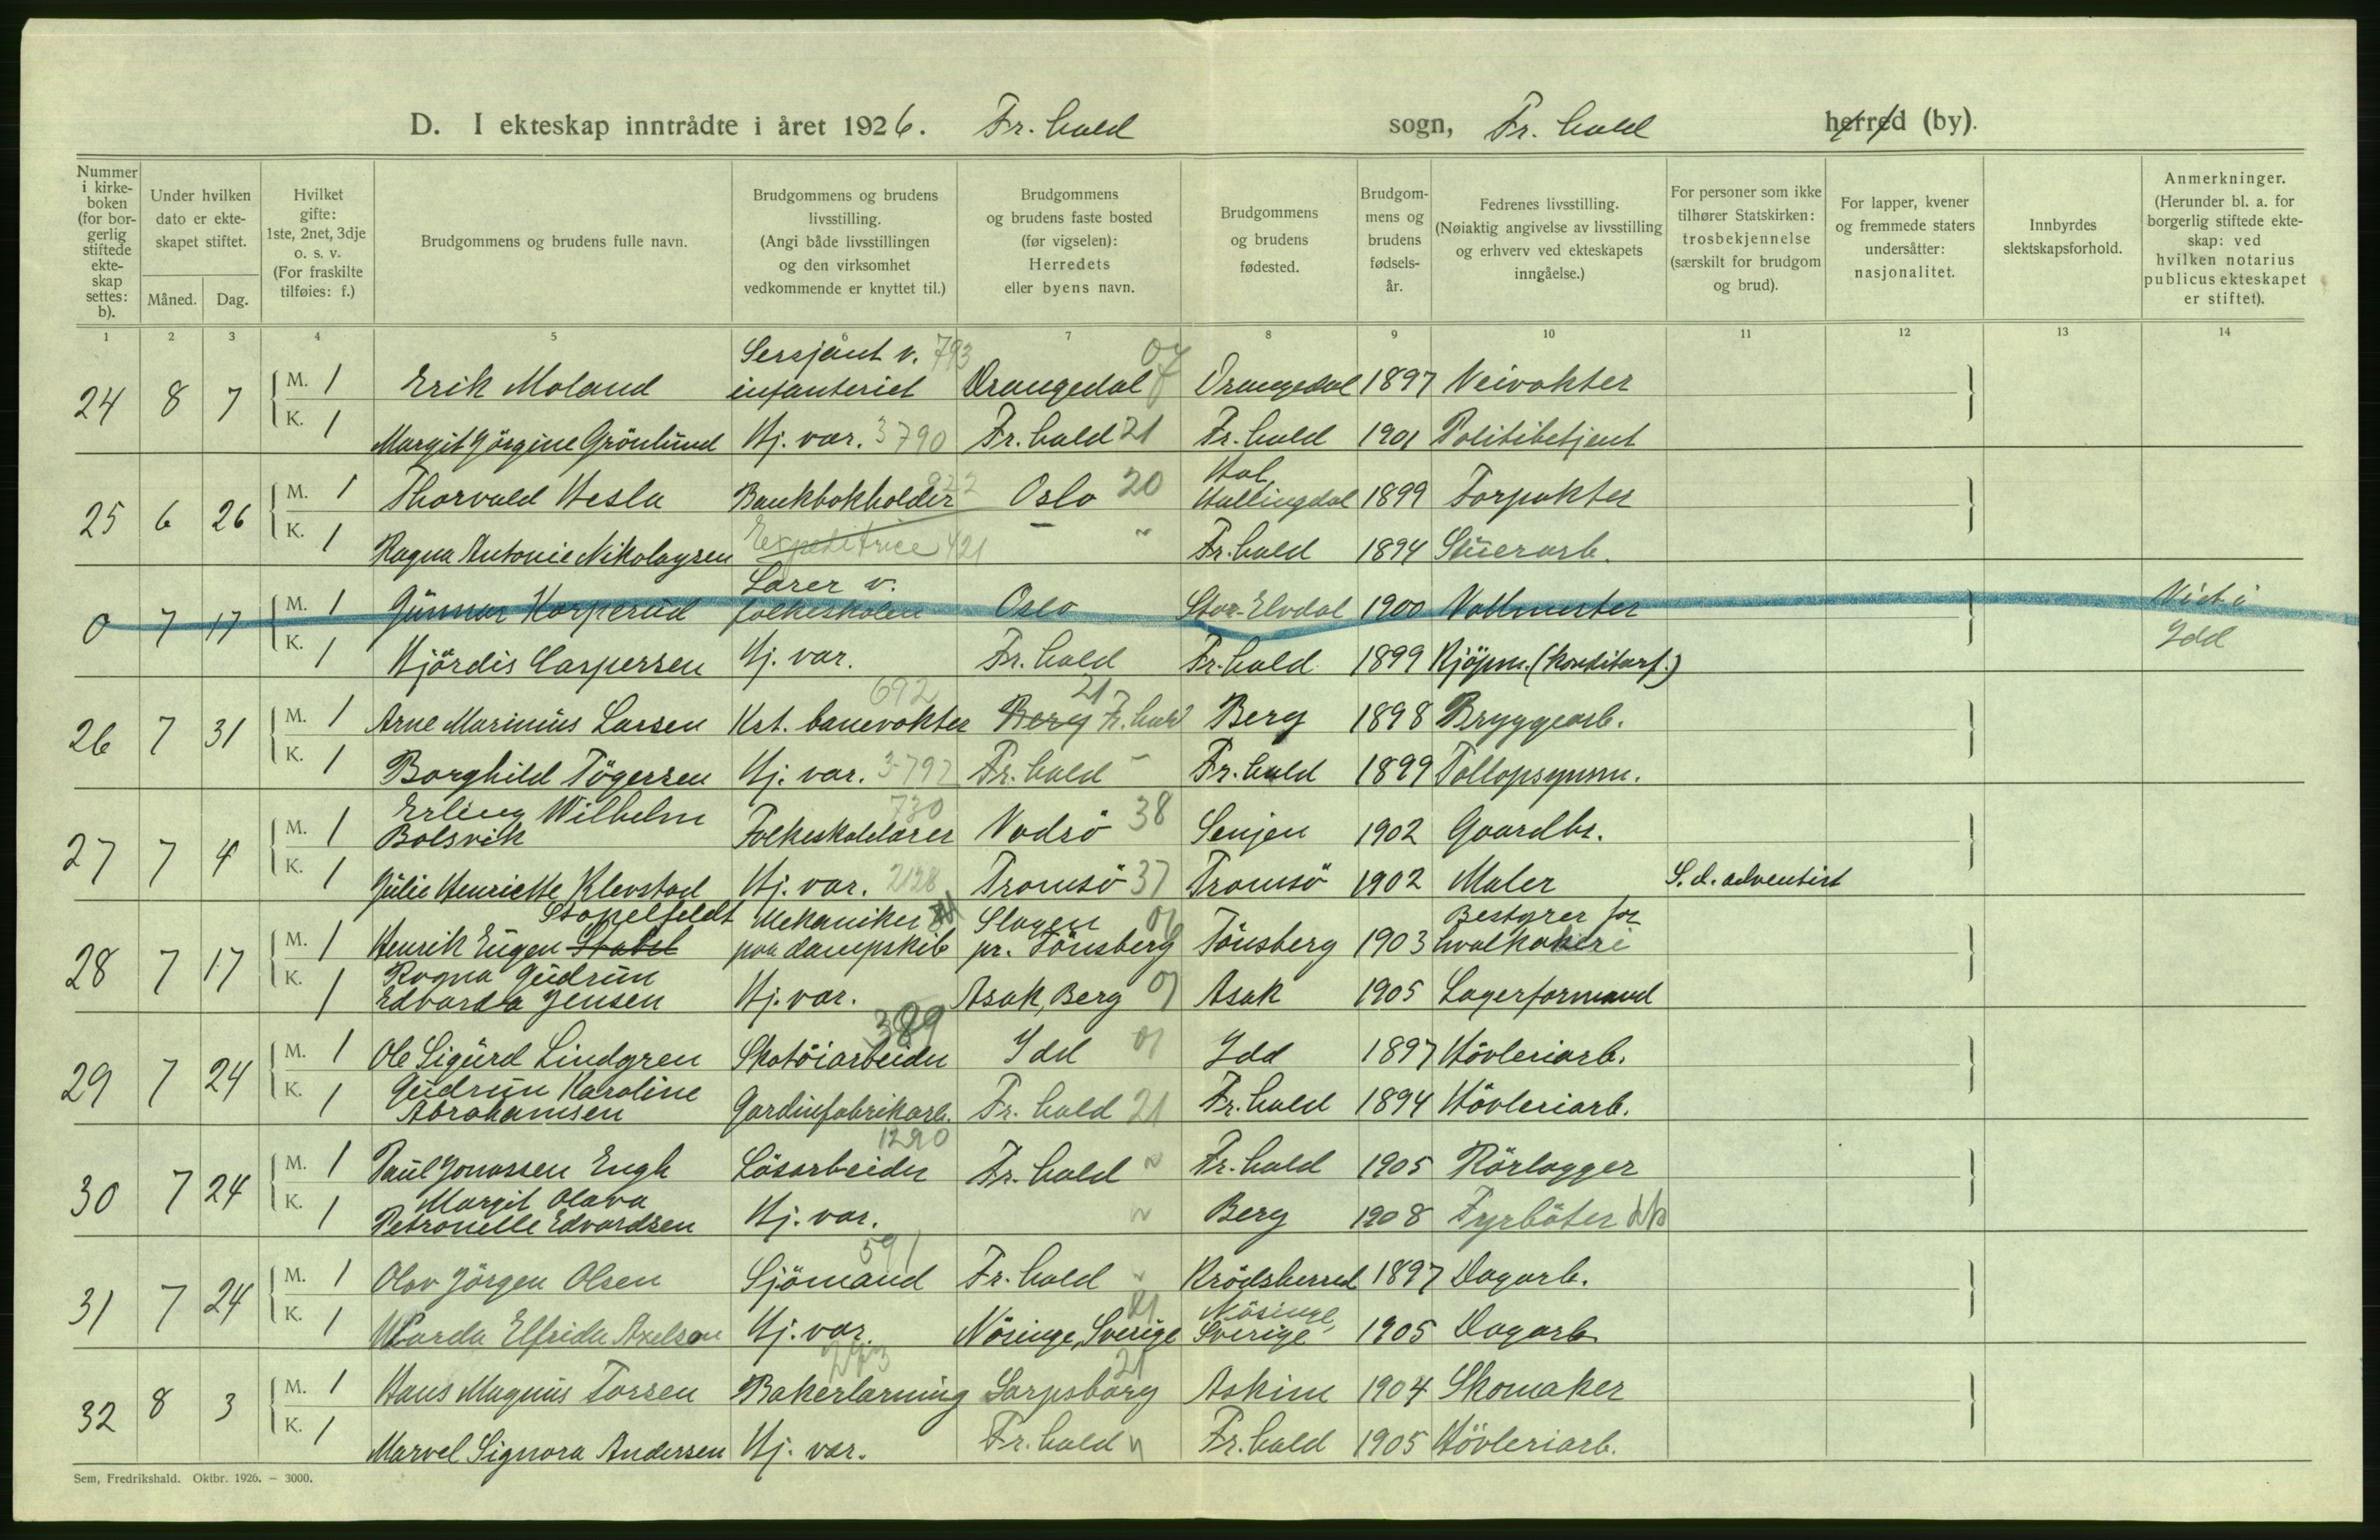 D. I ekteskap inntrådte i året 1926. Fr.hald sogn, Fr. hald herred (by).
Nummer i kirke-boken (for bor-gerlig stiftede ekte-skap settes: b).
Under hvilken dato er ekte-skapet stiftet.
Måned. Dag.
Hvilket gifte: 1ste, 2net, 3dje o. s. v. (For fraskilte tilføies: f.)
Brudgommens og brudens fulle navn.
Brudgommens og brudens livsstilling. (Angi både livsstillingen og den virksomhet vedkommende er knyttet til.)
Brudgommens og brudens faste bosted (før vigselen): Herredets eller byens navn.
Brudgommens og brudens fødested.
Brudgom-mens og brudens fødsels-år.
Fedrenes livsstilling. (Nøiaktig angivelse av livsstilling og erhverv ved ekteskapets inngåelse.)
For personer som ikke tilhører Statskirken: trosbekjennelse (særskilt for brudgom og brud).
For lapper, kvener og fremmede staters undersåtter: nasjonalitet.
Innbyrdes slektskapsforhold.
Anmerkninger. (Herunder bl. a. for borgerlig stiftede ekte-skap: ved hvilken notarius publicus ekteskapet er stiftet).
1 2 3 4 5 6 7 8 9 10 11 12 13 14
24 8 7 M. 1 Erik Moland Sersjant v. infanteriet 793 Drangedal 07 Drangedal 1897 Veivokter
K. 1 Margit Jörgine Grönlund Hj. vær. 3790 Fr.hald 21 Fr.hald 1901 Politibetjent
25 6 26 M. 1 Thorvald Hesla Bankbokholder 822 Oslo 20 Hol, Hallingdal 1899 Forpakter
K. 1 Ragna Antonie Nikolaysen Expeditrice 421 — " Fr.hald 1894 Stuerarb.
0 7 17 M. 1 Gunnar Korperud Lærer v. folkeskolen Oslo Stor-Elvdal 1900 Voktmester Viet i
K. 1 Hjördis Caspersen Hj. vær. Fr.hald Fr.hald 1899 Kjöpm. (konditorf.) Idd
26 7 31 M. 1 Arne Marinius Larsen Kst. banevokter 692 Berg Fr.hald 21 Berg 1898 Bryggearb.
K. 1 Borghild Tögersen Hj. vær. 3-792 Fr.hald " Fr.hald 1899 Tollopsynsm.
27 7 4 M. 1 Erling Wilhelm Bolsvik Folkeskolelærer 730 Vadsö 38 Senjen 1902 Gaardbr.
K. 1 Julie Henriette Klevstad Hj. vær. 2128 Tromsö 37 Tromsö 1902 Maler S. d. adventist
28 7 17 M. 1 Henrik Eugen Stabel Stapelfeldt Mekaniker paa dampskib Slagen pr. Tönsberg 07 Tönsberg 1903 Bestyrer for hvalkokeri
K. 1 Ragna Gudrun Edvarda Jensen Hj. vær. Asak, Berg 01 Asak 1905 Lagerformand
29 7 24 M. 1 Ole Sigurd Lindgren Skotöiarbeider 389 Idd 01 Idd 1897 Hövleriarb.
K. 1 Gudrun Karoline Abrahamsen Gardinfabrikarb. Fr.hald 21 Fr.hald 1894 Hövleriarb.
30 7 24 M. 1 Paul Jonassen Engh Lösarbeider 1290 Fr.hald " Fr.hald 1905 Rörlegger
K. 1 Margit Olava Petronelle Edvardsen Hj. vær. " Berg 1908 Fyrböter
31 7 24 M. 1 Olav Jörgen Olsen Sjömand 591 Fr.hald " Krödsherred 1897 Dagarb.
K. 1 Warda Elfrida Axelson Hj. vær. Näsinge, Sverige Näsinge, Sverige 1905 Dagarb
32 8 3 M. 1 Hans Magnus Torsen Bakerlærning Sarpsborg 21 Askim 1904 Skomaker
K. 1 Marvel Signora Andersen Hj. vær. Fr.hald " Fr.hald 1905 Hövleriarb.
Sem, Fredrikshald. Oktbr. 1926. — 3000.